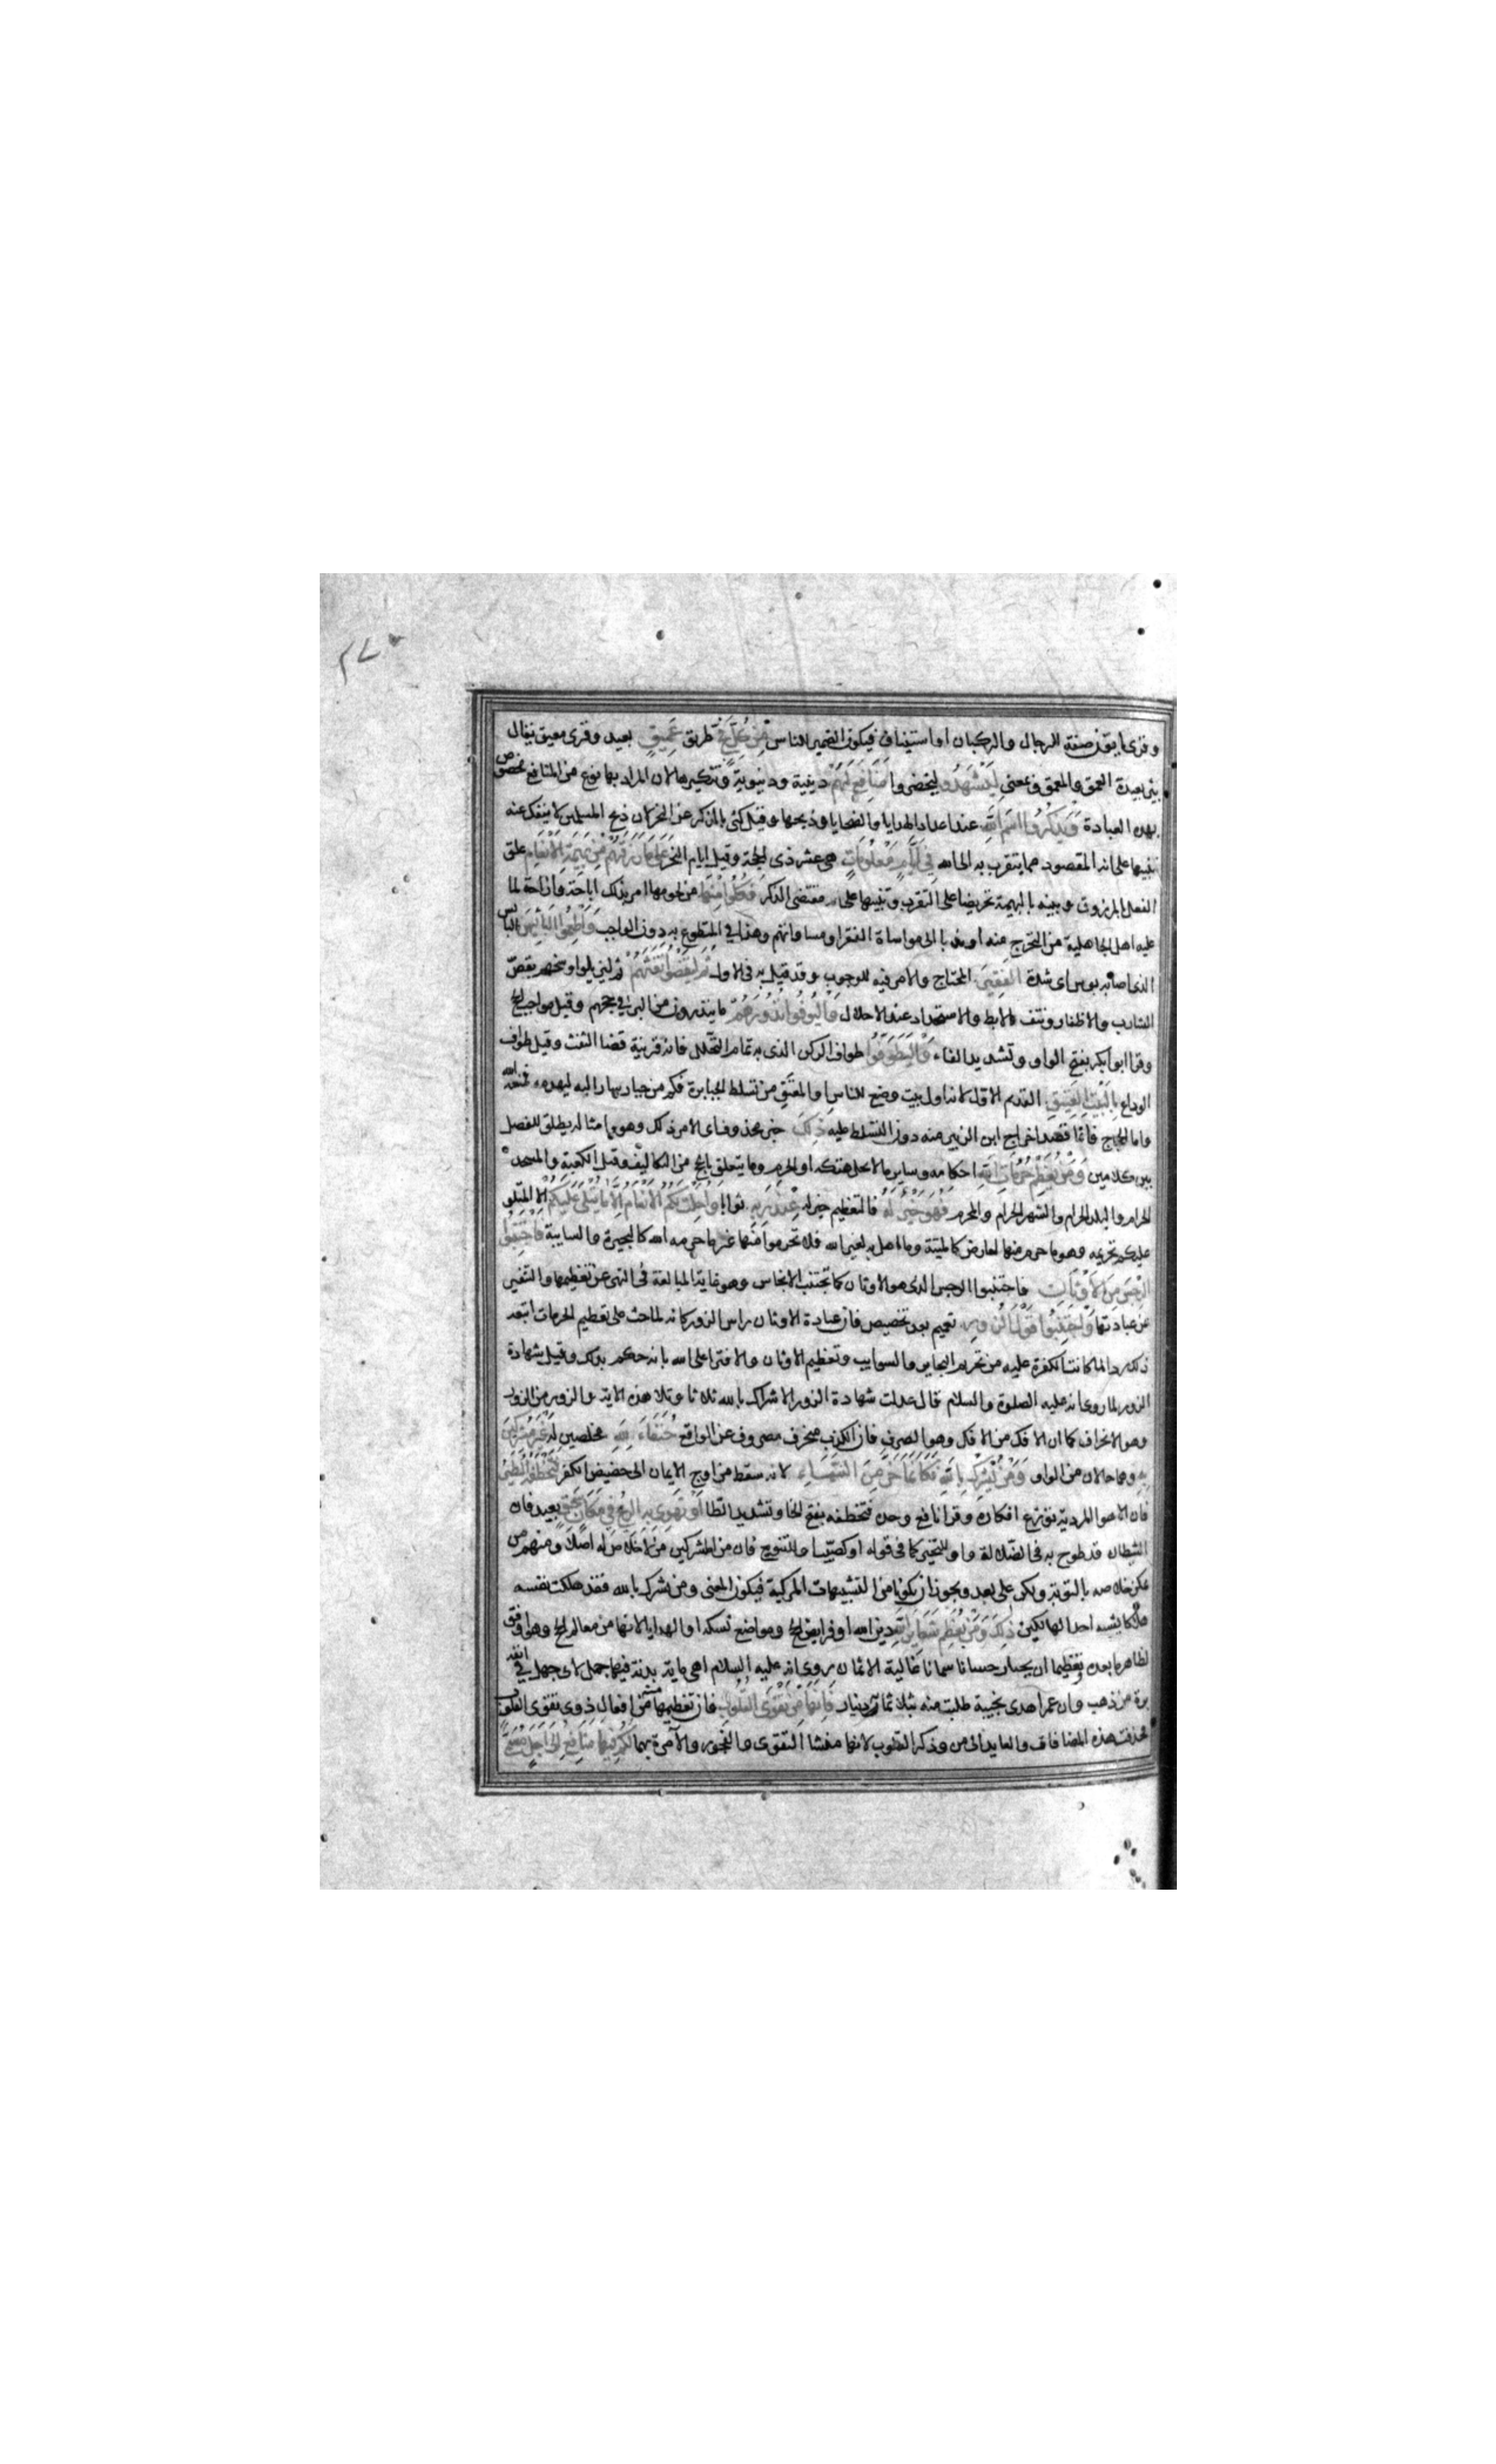 ٢٧٠
وقرئ يأتون صفة للرجال والركبان او استيناف فيكون الضمير للناس مِنْ كُلِّ فَجٍّ طريق عَمِيقٍ بعيد وقرى معيق يقال
بئر بعيدة العمق والمعق بمعنى لِيَشْهَدُوا ليحضروا مَنَافِعَ لَهُمْ دينية ودنيوية وتنكيرها لان المراد بها نوع من المنافع مخصوص
بهذه العبادة وَيَذْكُرُوا اسْمَ اللَّهِ عند اعداد الهدايا والضحايا وذبحها وقيل كنى بالذكر عن النحر لان ذبح المسلمين لا ينفك عنه
تنبيها على انه المقصود مما يتقرب به الى الله فِي أَيَّامٍ مَعْلُومَاتٍ هى عشر ذى الحجة وقيل ايام النحر عَلَى مَا رَزَقَهُمْ مِنْ بَهِيمَةِ الْأَنْعَامِ علق
الفعل بالمرزوق وبينه بالبهيمة تحريضا على التقرب وتنبيها على مقتضى الذكر فَكُلُوا مِنْهَا من لحومها امر بذلك اباحة وازاحة لما
عليه اهل الجاهلية من التحرج منه او ندبا الى مواساة الفقرا ومساواتهم وهذا في المتطوع به دون الواجب وَأَطْعِمُوا الْبَائِسَ البائس
الذى اصابه بوس اى شدة الْفَقِيرَ المحتاج والامر فيه للوجوب وقد قيل به فى الاول ثُمَّ لْيَقْضُوا تَفَثَهُمْ ثم ليزيلوا وسخهم بقص
الشارب والاظفار ونتف الابط والاستحداد عند الاحلال وَلْيُوفُوا نُذُورَهُمْ ما ينذرون من البر في حجهم وقيل مواجب الحج
وقرا ابو بكر بفتح الواو وتشديد الفاء وَلْيَطَّوَّفُوا طواف الركن الذى به تمام التحلل فانه قرينة قضا التفث وقيل طواف
الوداع بِالْبَيْتِ الْعَتِيقِ القديم الاول لانه اول بيت وضع للناس او المعتق من تسلط الجبابرة فكم من جبار سار اليه ليهدمه فمنعه الله
واما الحجاج فانما قصد اخراج ابن الزبير منه دون التسلط عليه ذَلِكَ خبر محذوف اى الامر ذلك وهو وامثاله يطلق للفصل
بين كلامين وَمَنْ يُعَظِّمْ حُرُمَاتِ اللَّهِ احكامه وساير ما لا يحل هتكه او الحرم وما يتعلق بالحج من التكاليف وقيل الكعبة والمسجد
الحرام والبلد الحرام والشهر الحرام والمحرم فَهُوَ خَيْرٌ لَهُ فالتعظيم خير له عِنْدَ رَبِّهِ ثوابا وَأُحِلَّتْ لَكُمُ الْأَنْعَامُ إِلَّا مَا يُتْلَى عَلَيْكُمْ الا المتلو
عليكم تحريمه وهو ما حرم منها لعارض كالميتة وما اهل به لغير الله فلا تحرموا منها غير ما حرمه الله كالبحيرة والسايبة فَاجْتَنِبُوا
الرِّجْسَ مِنَ الْأَوْثَانِ فاجتنبوا الرجس الذى هو الاوثان كما تجتنب الانجاس وهو غاية المبالغة فى النهى عن تعظيمها والتنفير
عن عبادتها وَاجْتَنِبُوا قَوْلَ الزُّورِ تعميم بعد تخصيص فان عبادة الاوثان راس الزور كانه لما حث على تعظيم الحرمات اتبعه
ذلك ردا لما كانت الكفرة عليه من تحريم البحاير والسوايب وتعظيم الاوثان والافترا على الله بانه حكم بذلك وقيل شهادة
الزور لما روى انه عليه الصلوة والسلام قال عدلت شهادة الزور الاشراك بالله ثلاثا وتلا هذه الاية والزور من الزور
وهو الانحراف كما ان الافك من الافك وهو الصرف فان الكذب منحرف مصروف عن الواقع حُنَفَاءَ لِلَّهِ مخلصين له غَيْرَ مُشْرِكِينَ
بِهِ وهما حالان من الواو وَمَنْ يُشْرِكْ بِاللَّهِ فَكَأَنَّمَا خَرَّ مِنَ السَّمَاءِ لانه سقط من اوج الايمان الى حضيض الكفر فَتَخْطَفُهُ الطَّيْرُ
فان الاهوا المردية توزع افكاره وقرا نافع وحده فتخطفه بفتح الخا وتشديد الطا أَوْ تَهْوِي بِهِ الرِّيحُ فِي مَكَانٍ سَحِيقٍ بعيد فان
الشيطان قد طوح به فى الضلالة واو للتخيير كما فى قوله او كصيب او للتنويع فان من المشركين من لا خلاص له اصلا ومنهم من
يمكن خلاصه بالتوبة ولكن على بعد ويجوز ان يكون من التشبيهات المركبة فيكون المعنى ومن يشرك بالله فقد هلكت نفسه
هلاكا يشبه احد الهالكين ذَلِكَ وَمَنْ يُعَظِّمْ شَعَائِرَ اللَّهِ دين الله او فرايض الحج ومواضع نسكه او الهدايا لانها من معالم الحج وهو اوفق
لظاهر ما بعده وتعظيمها ان يختار حسانا سمانا غالية الاثمان روى انه عليه السلام اهدى ماية بدنة فيها جمل لابى جهل في انفه
برة من ذهب وان عمر اهدى نجيبة طلبت منه بثلاثماية دينار فَإِنَّهَا مِنْ تَقْوَى الْقُلُوبِ فان تعظيمها منه من افعال ذوى تقوى القلوب
فحذفت هذه المضافات والعايد الى من وذكر القلوب لانها منشا التقوى والفجور والآمرة بهما لَكُمْ فِيهَا مَنَافِعُ إِلَى أَجَلٍ مُسَمًّى